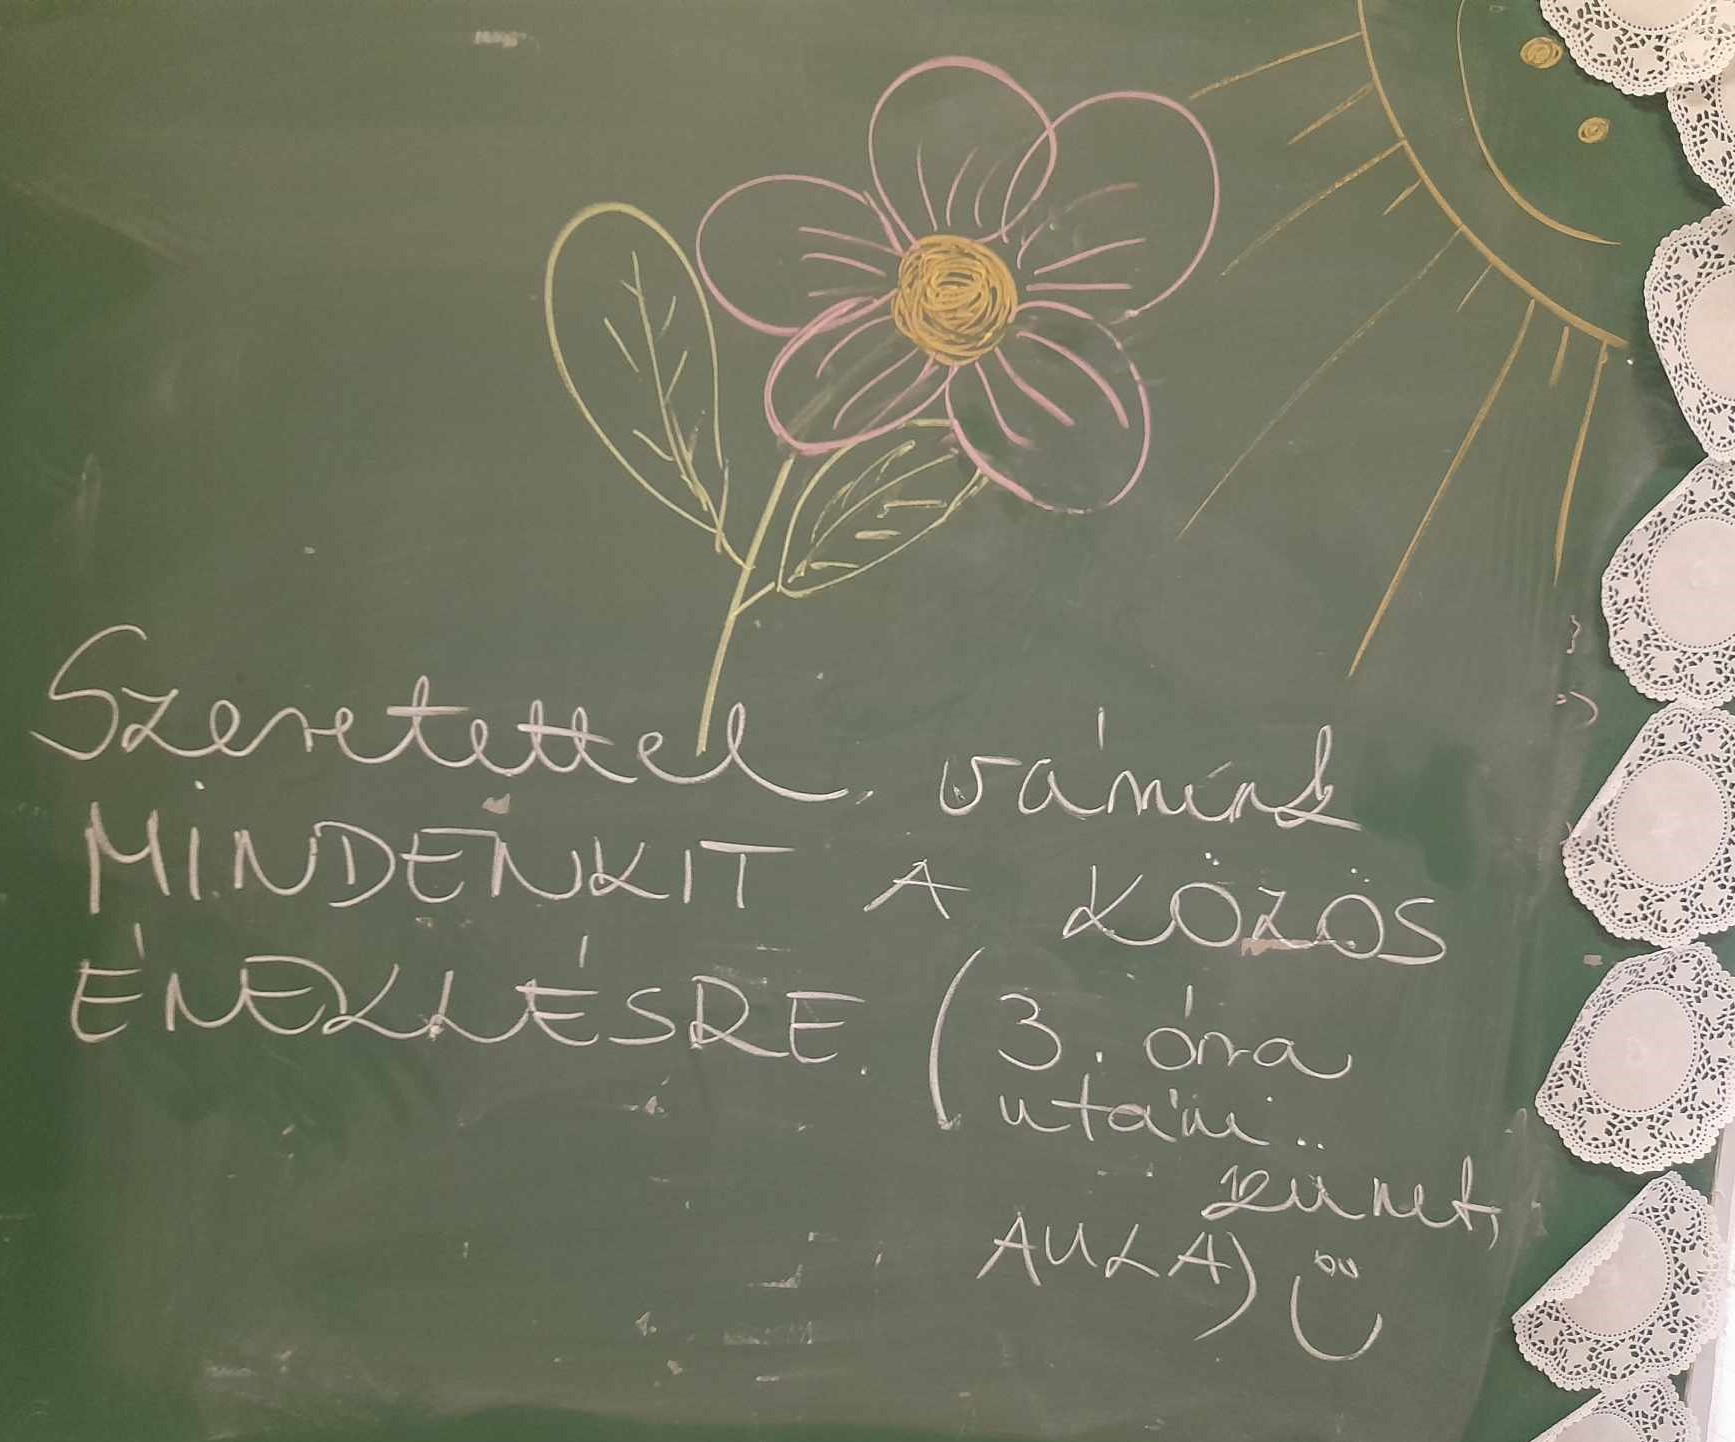 Szeretettel várunk
MINDENKIT A KÖZÖS
ÉNEKLÉSRE (3. óra
utáni
szünet,
AULA)